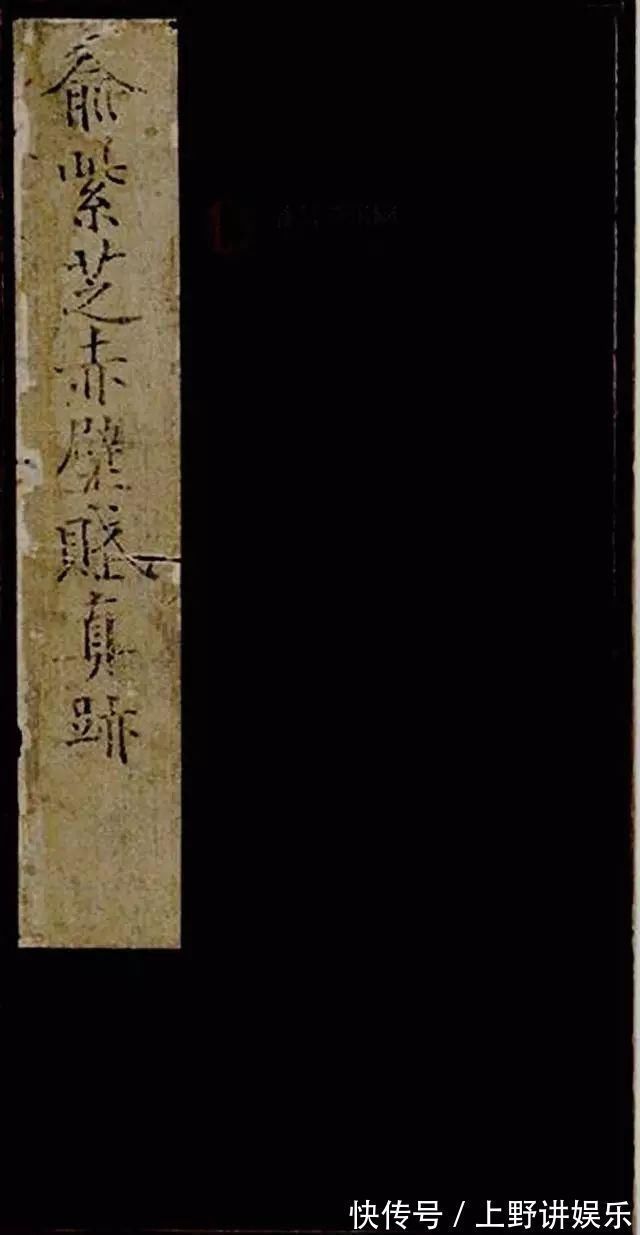 俞紫芝赤壁賦真跡
快传号 / 上野讲娱乐